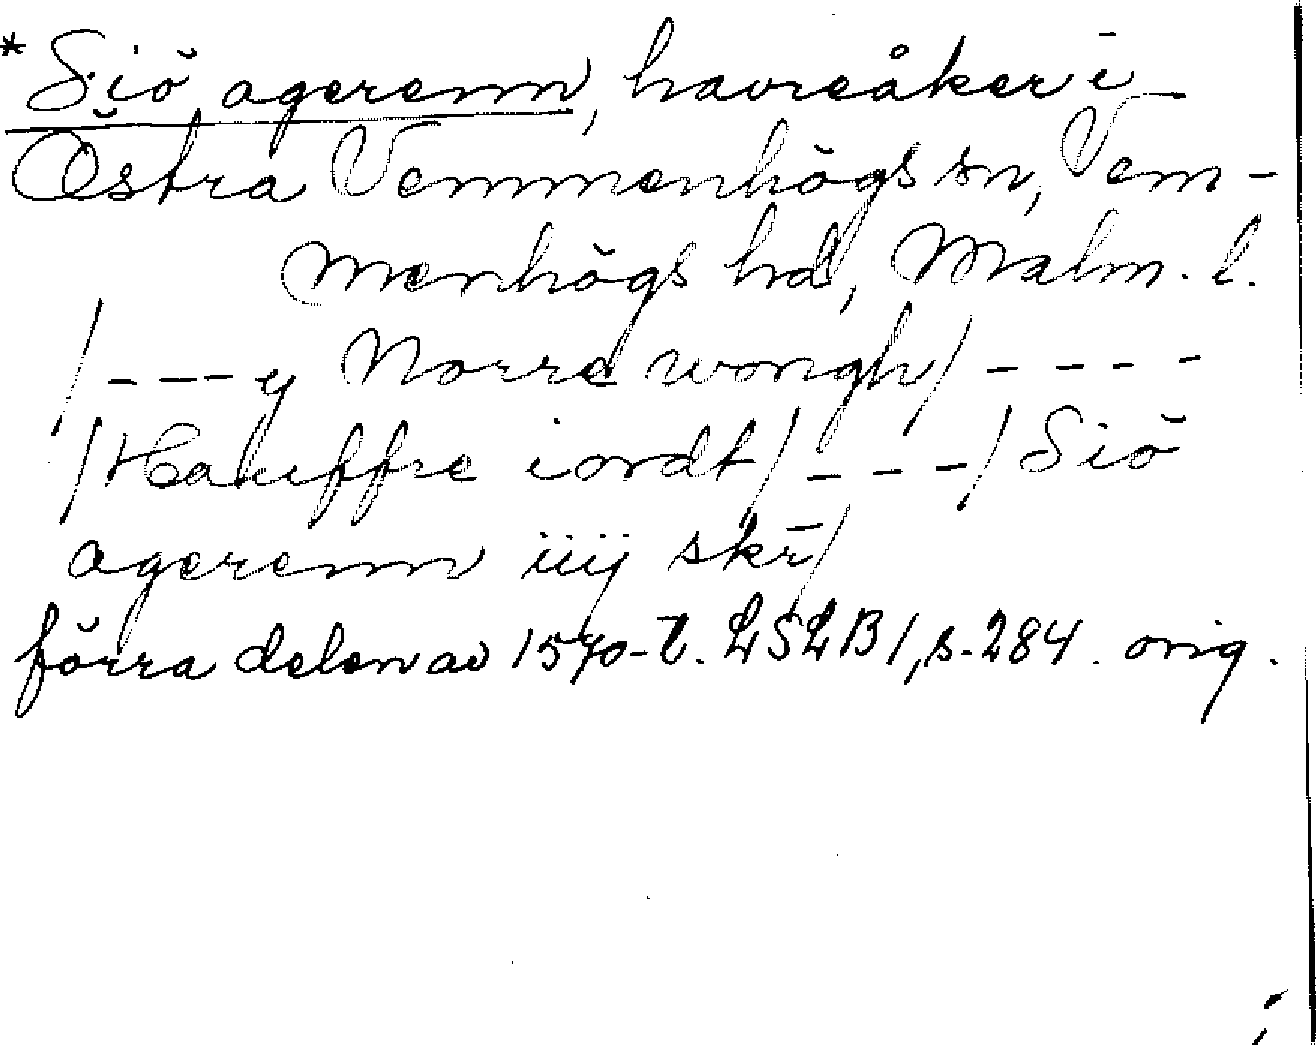 *Siö agerenn, havreåker i
Östra Vemmenhögs sn, Vem-
menhögs hd, Malm. l.
/---y Norre wongh/----
/Hauffre iordt/---/Siö
agerenn iiij skr̄/
förra delen av 1570-t. LSLB1, s. 284. orig.